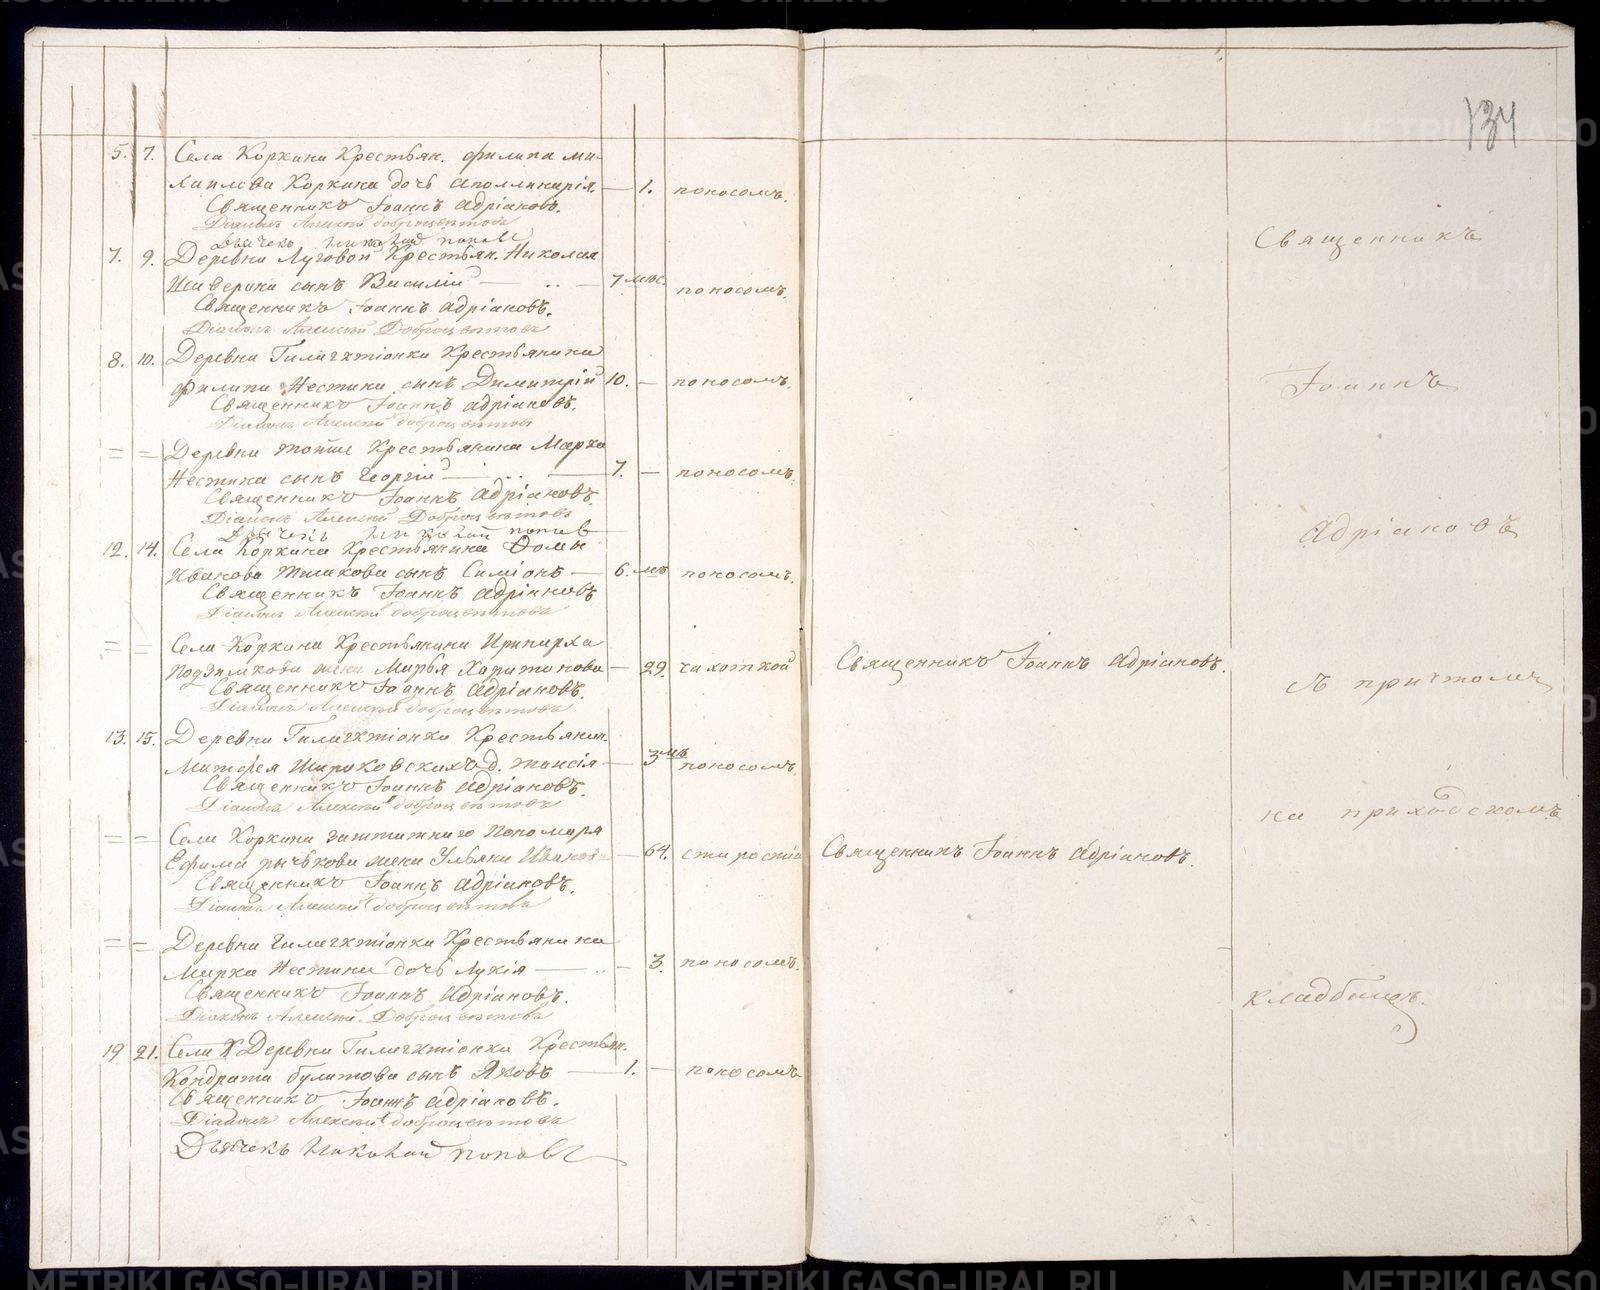 134
5. 7. Села Коркина Крестьян. Филипа Ми-
хаилова Коркина дочь Аполлинарія. — 1. поносомъ.
Священникъ Іоаннъ Адріановъ.
Діаконъ Алексій Доброцвѣтовъ
Дьячекъ Николай Поповъ
7. 9. Деревни Луговой Крестьян. Николая
Шаверина сынъ Василій — 7 мѣс. поносомъ.
Священникъ Іоаннъ Адріановъ.
Діаконъ Алексій Доброцвѣтовъ
8. 10. Деревни Гилигхтіонки Крестьянина
Филипа Нестина сынъ Димитрій 10. — поносомъ.
Священникъ Іоаннъ Адріановъ.
Діаконъ Алексій Доброцвѣтовъ
= = Деревни тойже Крестьянина Марка
Нестина сынъ Георгій — 7. — поносомъ.
Священникъ Іоаннъ Адріановъ.
Діаконъ Алексій Доброцвѣтовъ
Дьячекъ Николай Поповъ
12. 14. Села Коркина Крестьянина Фомы
Иванова сынъ Симіонъ — 6. мѣ поносомъ.
Священникъ Іоаннъ Адріановъ
Діаконъ Алексій Доброцвѣтовъ
= = Села Коркина Крестьянина Иринарха
жена Марья Харитонова — 29. чахоткой Священникъ Іоаннъ Адріановъ.
Священникъ Іоаннъ Адріановъ.
Діаконъ Алексій Доброцвѣтовъ
13. 15. Деревни Гилигхтіонки Крестьянин.
Матфея Шариковскихъ д. Таисія — 3 мѣ поносомъ.
Священникъ Іоаннъ Адріановъ.
Діаконъ Алексій Доброцвѣтовъ
= = Села Коркина заштатнаго Пономаря
Ефима Рычкова жена Ульяна Иванова — 64. старостію Священникъ Іоаннъ Адріановъ.
Священникъ Іоаннъ Адріановъ.
Діаконъ Алексій Доброцвѣтовъ
= = Деревни Гилигхтіонки Крестьянина
Марка Нестина дочь Лукія — 3. поносомъ.
Священникъ Іоаннъ Адріановъ.
Діаконъ Алексій Доброцвѣтовъ
19 21. Села К Деревни Гилигхтіонки Крестьян.
Кондрата Булатова сынъ Яковъ — 1. — поносомъ
Священникъ Іоаннъ Адріановъ.
Діаконъ Алексій Доброцвѣтовъ
Дьячекъ Николай Поповъ
Священникъ
Іоаннъ
Адріановъ
съ причтомъ
на приходскомъ
кладбищѣ.
METRIKI.GASO-URAL.RU